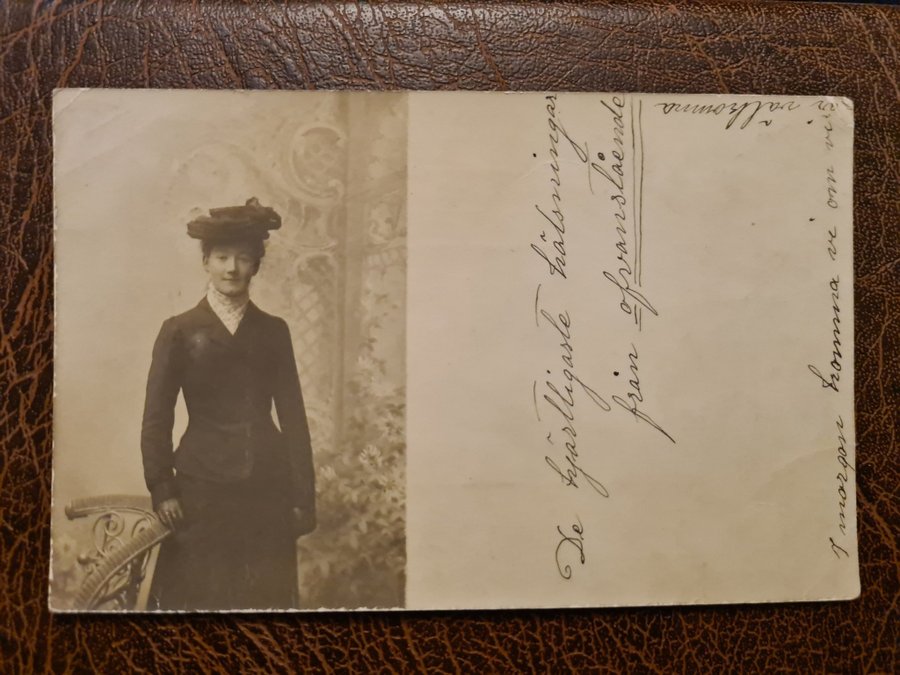 De hjärtligaste hälsningar
från ofvanstående
I morgon komma vi om vi
är välkomna